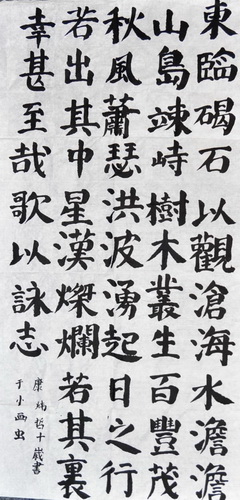 東臨碣石以觀滄海水澹澹
山島竦峙樹木叢生百豐茂
秋風蕭瑟洪波湧起日之行
若出其中星漢燦爛若其裏
幸甚至哉歌以詠志
康哲十歲書
于小虫